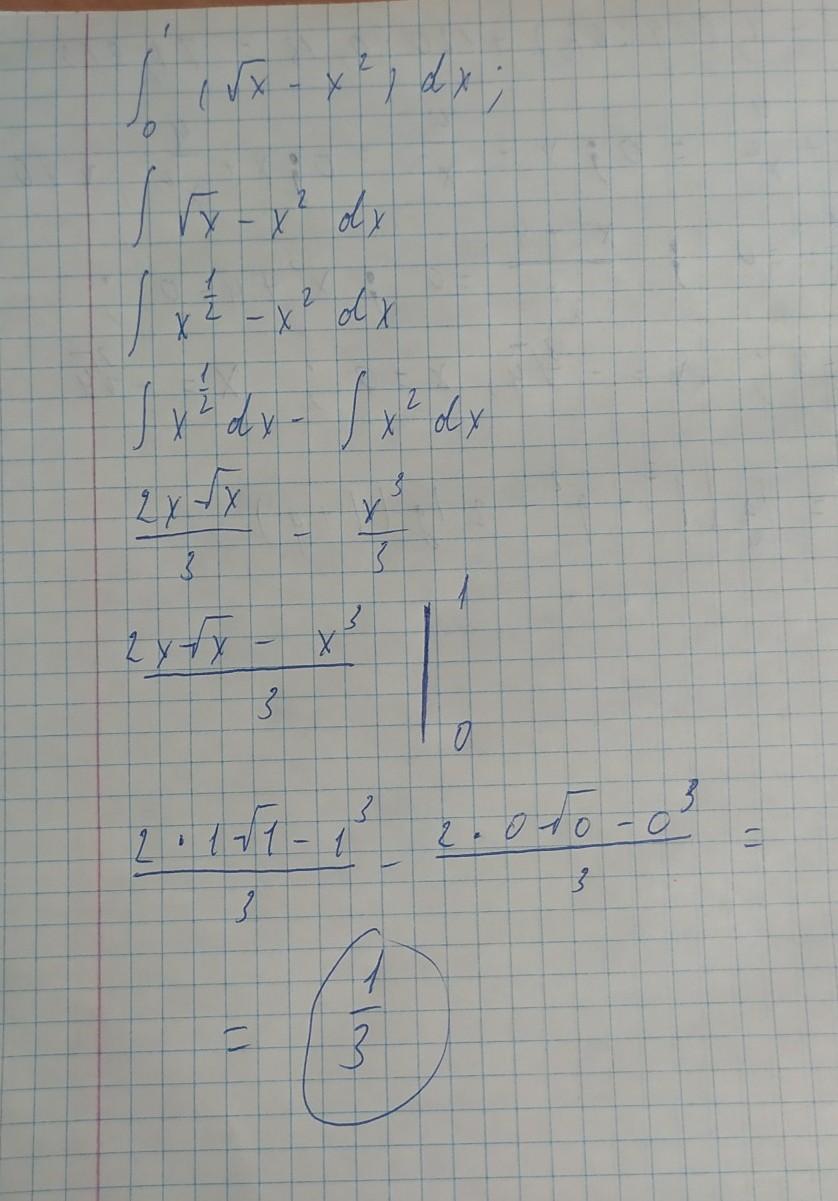 ∫₀¹ (√x - x²) dx;
∫ √x - x² dx
∫ x^(1/2) - x² dx
∫ x^(1/2) dx - ∫ x² dx
2x√x/3 - x³/3
(2x√x - x³)/3 |₀¹
(2 · 1√1 - 1³)/3 - (2 · 0√0 - 0³)/3 =
= 1/3